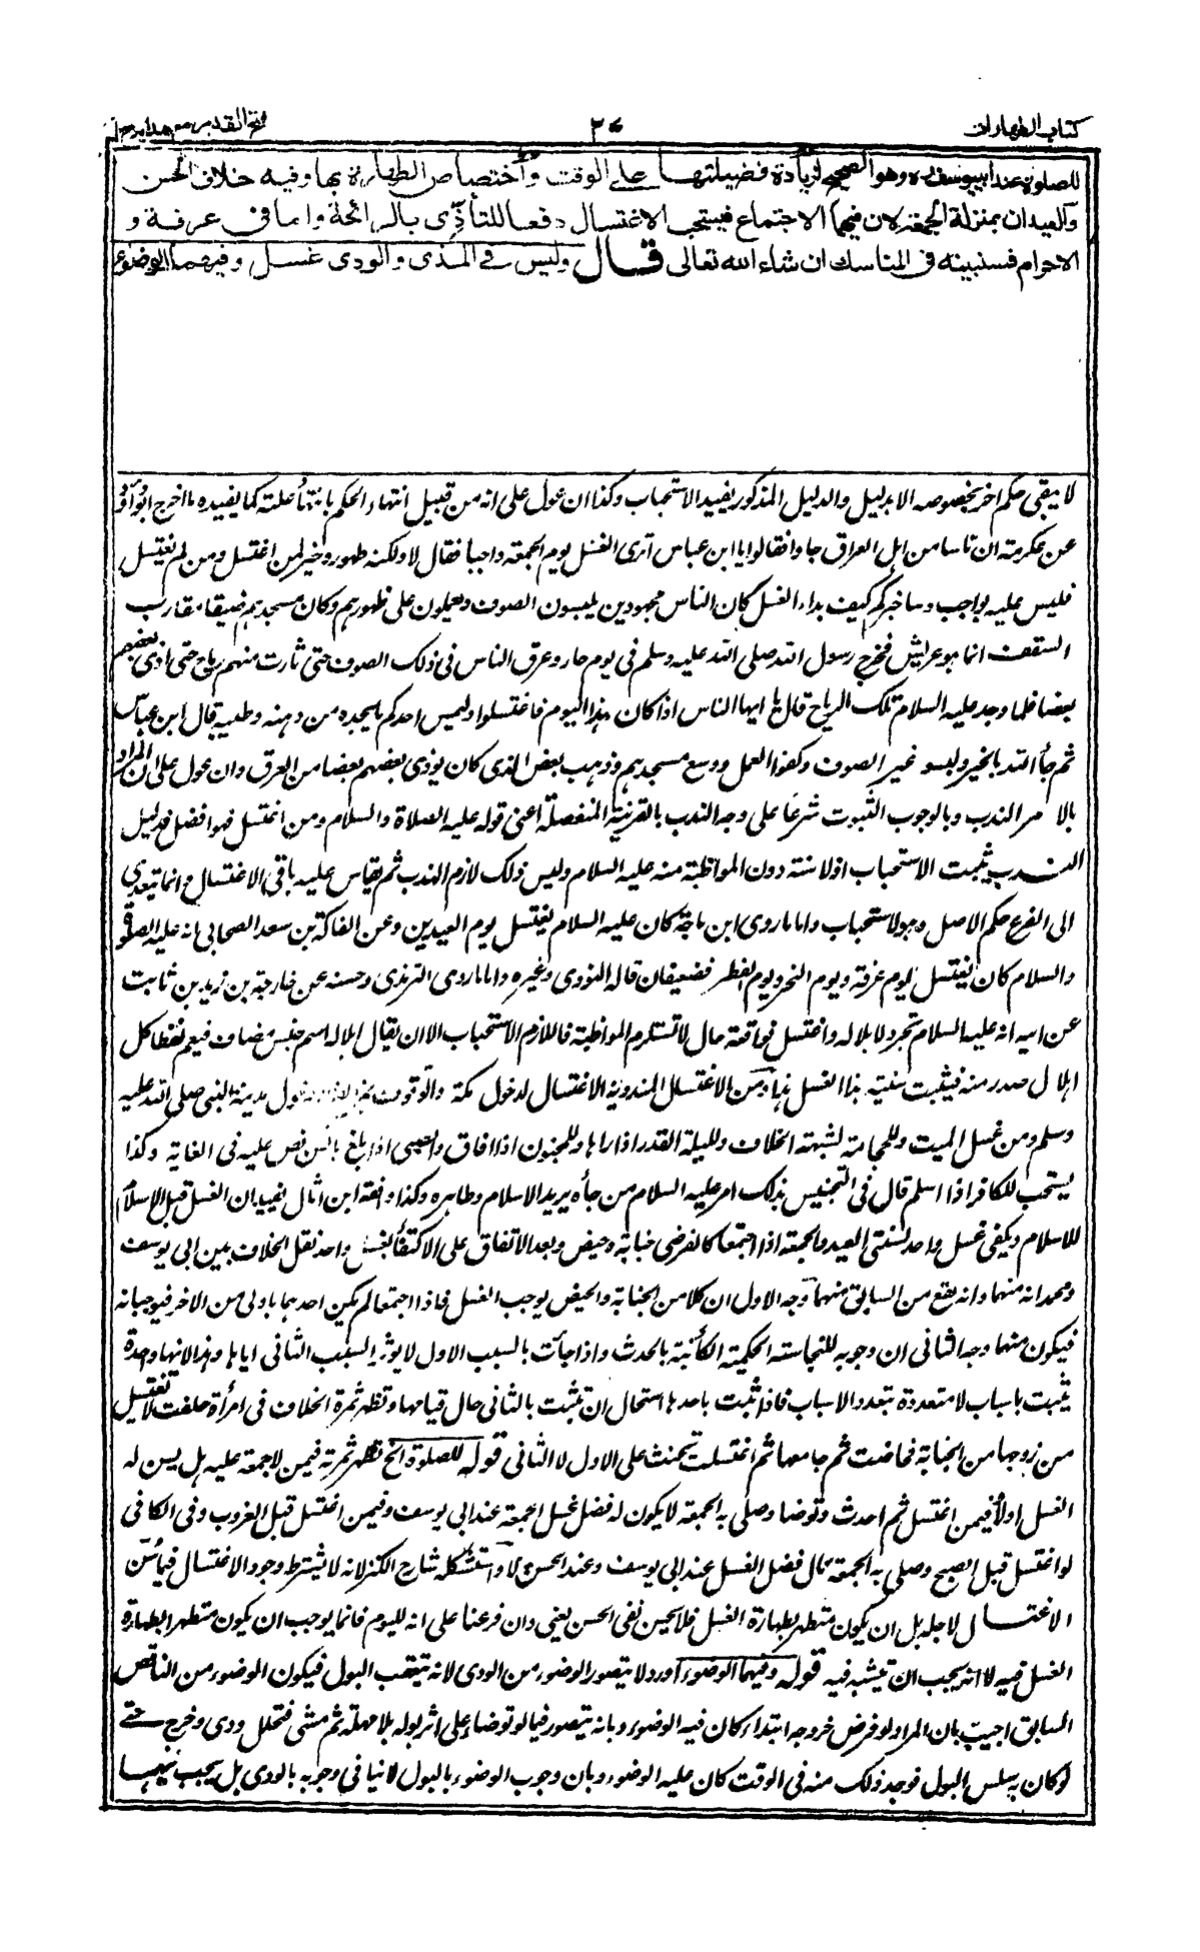 كتاب الطهارات
٢٧
فتح القدير مع هداية ج ١
للصلوة عند ابي يوسف ره وهو الصحيح لزيادة فضيلتها على الوقت واختصاص الطهارة بها وفيه خلاف الحسن
والعيدان بمنزلة الجمعة لان فيهما الاجتماع فيستحب الاغتسال دفعا للتأذى بالرائحة واما فى عرفة و
الاحرام فسنبينه فى المناسك ان شاء الله تعالى قال وليس فى المذى والودى غسل وفيهما الوضوء
لا يبقى حكم اخر بخصوصه الا بدليل والدليل المذكور يفيد الاستحباب وكذا ان عول على انه من قبيل انتهاء الحكم بانتهاء علته كما يفيده ما اخرج ابو داؤد
عن عكرمة ان ناسا من اهل العراق جاؤا فقالوا يا ابن عباس أترى الغسل يوم الجمعة واجبا فقال لا ولكنه طهور وخير لمن اغتسل ومن لم يغتسل
فليس عليه بواجب وساخبركم كيف بداء الغسل كان الناس مجهودين يلبسون الصوف ويعملون على ظهورهم وكان مسجدهم ضيقا مقارب
السقف انما هو عريش فخرج رسول الله صلى الله عليه وسلم فى يوم حار وعرق الناس فى ذلك الصوف حتى ثارت منهم رياح حتى اذى بعضهم
بعضا فلما وجد عليه السلام تلك الرياح قال يا ايها الناس اذا كان هذا اليوم فاغتسلوا وليمس احدكم ما يجده من دهنه وطيبه قال ابن عباس
ثم جاء الله بالخير ولبسو غير الصوف وكفوا العمل ووسع مسجدهم وذهب بعض الذى كان يوذى بعضهم بعضا من العرق وان عول على ان المراد
بالامر الندب وبالوجوب الثبوت شرعا على وجه الندب بالقرينة المنفصلة اعنى قوله عليه الصلاة والسلام ومن اغتسل فهو افضل فدليل
الندب يثبت الاستحباب اذ لا سنة دون المواظبة منه عليه السلام وليس ذلك لازم الندب ثم يقاس عليه باقى الاغتسال وانما يتعدى
الى الفرع حكم الاصل وهو لاستحباب واما ما روى ابن ماجة كان عليه السلام يغتسل يوم العيدين وعن الفاكة بن سعد الصحابى انه عليه الصلوة
والسلام كان يغتسل يوم عرفة ويوم النحر ويوم الفطر فضعيفان قاله النووى وغيره واما ما روى الترمذى وحسنه عن خارجة بن زيد بن ثابت
عن ابيه انه عليه السلام تجرد لاهلاله واغتسل فواقعة حال لا تستلزم المواظبة فاللازم الاستحباب الا ان يقال اهلاله اسم جنس مضاف فيعم لفظا كل
اهلال صدر منه فيثبت سنية هذا الغسل هذا ومن الاغتسال المندوبة الاغتسال لدخول مكة والوقوف بمزدلفة ودخول مدينة النبى صلى الله عليه
وسلم ومن غسل الميت وللحجامة لشبهة الخلاف ولليلة القدر اذا راها وللمجنون اذا افاق والصبى اذا بلغ بالسن نص عليه فى الغاية وكذا
يستحب للكافر اذا اسلم قال فى التجنيس بذلك امر عليه السلام من جاءه يريد الاسلام وظاهره وكذا واقعة ابن اثال يفيد ان الغسل قبل الاسلام
للاسلام ويكفى غسل واحد لسنتى العيد والجمعة اذا اجتمعا كما لفرضى جنابة وحيض وبعد الاتفاق على الاكتفاء بغسل واحد نقل الخلاف بين ابى يوسف
ومحمد انه منهما وانه يقع من السابق منهما وجه الاول ان كلا من الجنابة والحيض يوجب الغسل فاذا اجتمعا لم يكن احدهما باولى من الاخر فيوجبانه
فيكون منهما وجه الثانى ان وجوبه للنجاسة الحكمية الكائنة بالحدث واذا جاءت بالسبب الاول لا يوثر السبب الثانى اياها وهذا لانها واحدة
يثبت باسباب لا متعددة بتعدد الاسباب فاذا ثبت باحدها استحال ان تثبت بالثانى حال قيامها وتظهر ثمرة الخلاف فى امرأة حلفت لا تغتسل
من زوجها من الجنابة فحاضت ثم جامعها ثم اغتسلت تحنث على الاول لا الثانى قوله للصلوة الخ تظهر ثمرته فيمن لا جمعة عليه هل يسن له
الغسل اولا وفيمن اغتسل ثم احدث وتوضا وصلى به الجمعة لا يكون له فضل غسل الجمعة عند ابى يوسف وفيمن اغتسل قبل الغروب وفى الكافى
لو اغتسل قبل الصبح وصلى به الجمعة نال فضل الغسل عند ابى يوسف وعند الحسن لا واستشكله شارح الكنز لانه لا يشترط وجود الاغتسال فيما سن
الاغتسال لاجله بل ان يكون متطهرا بطهارة الغسل فلا يحسن نفى الحسن يعنى وان فرعنا على انه لليوم فانما يوجب ان يكون متطهرا بطهارة
الغسل فيه لا انه يجب ان ينشئه فيه قوله وفيهما الوضوء اورد لا يتصور الوضوء من الودى لانه يتعقب البول فيكون الوضوء من الناقض
السابق اجيب بان المراد لو فرض خروجه ابتداء كان فيه الوضوء وبانه يتصور فيما لو توضاء على اثر بوله بلا مهلة ثم مشى فتحلل ودى وخرج حتى
لو كان به سلس البول فوجد ذلك منه فى الوقت كان عليه الوضوء وبان وجوب الوضوء بالبول لا ينافى وجوبه بالودى بل يجب بهما